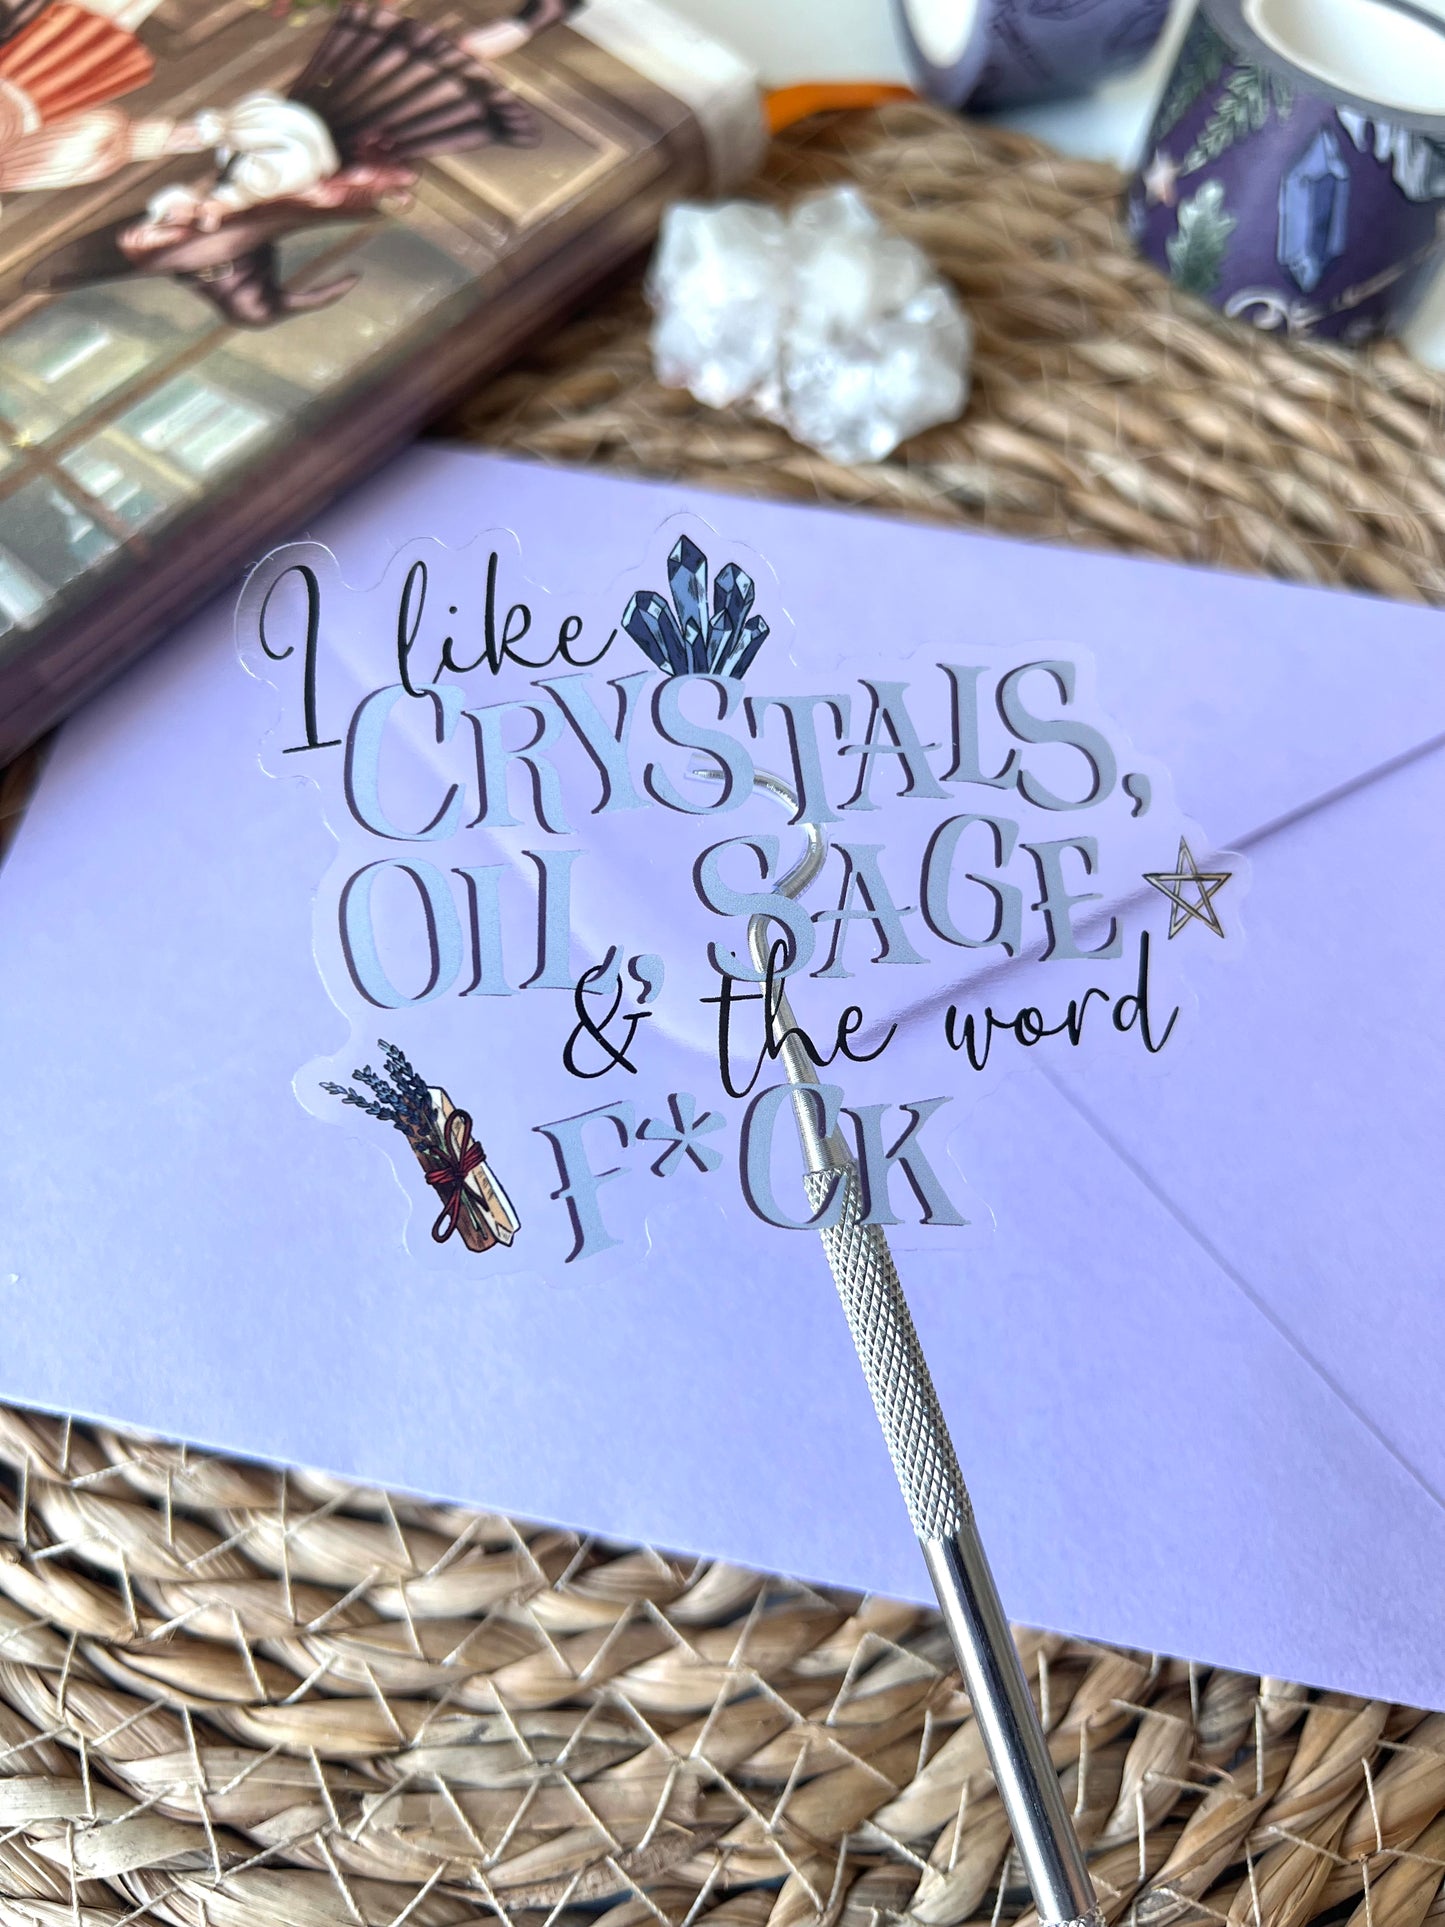 I like
CRYSTALS,
OIL, SAGE
& the word
F*CK